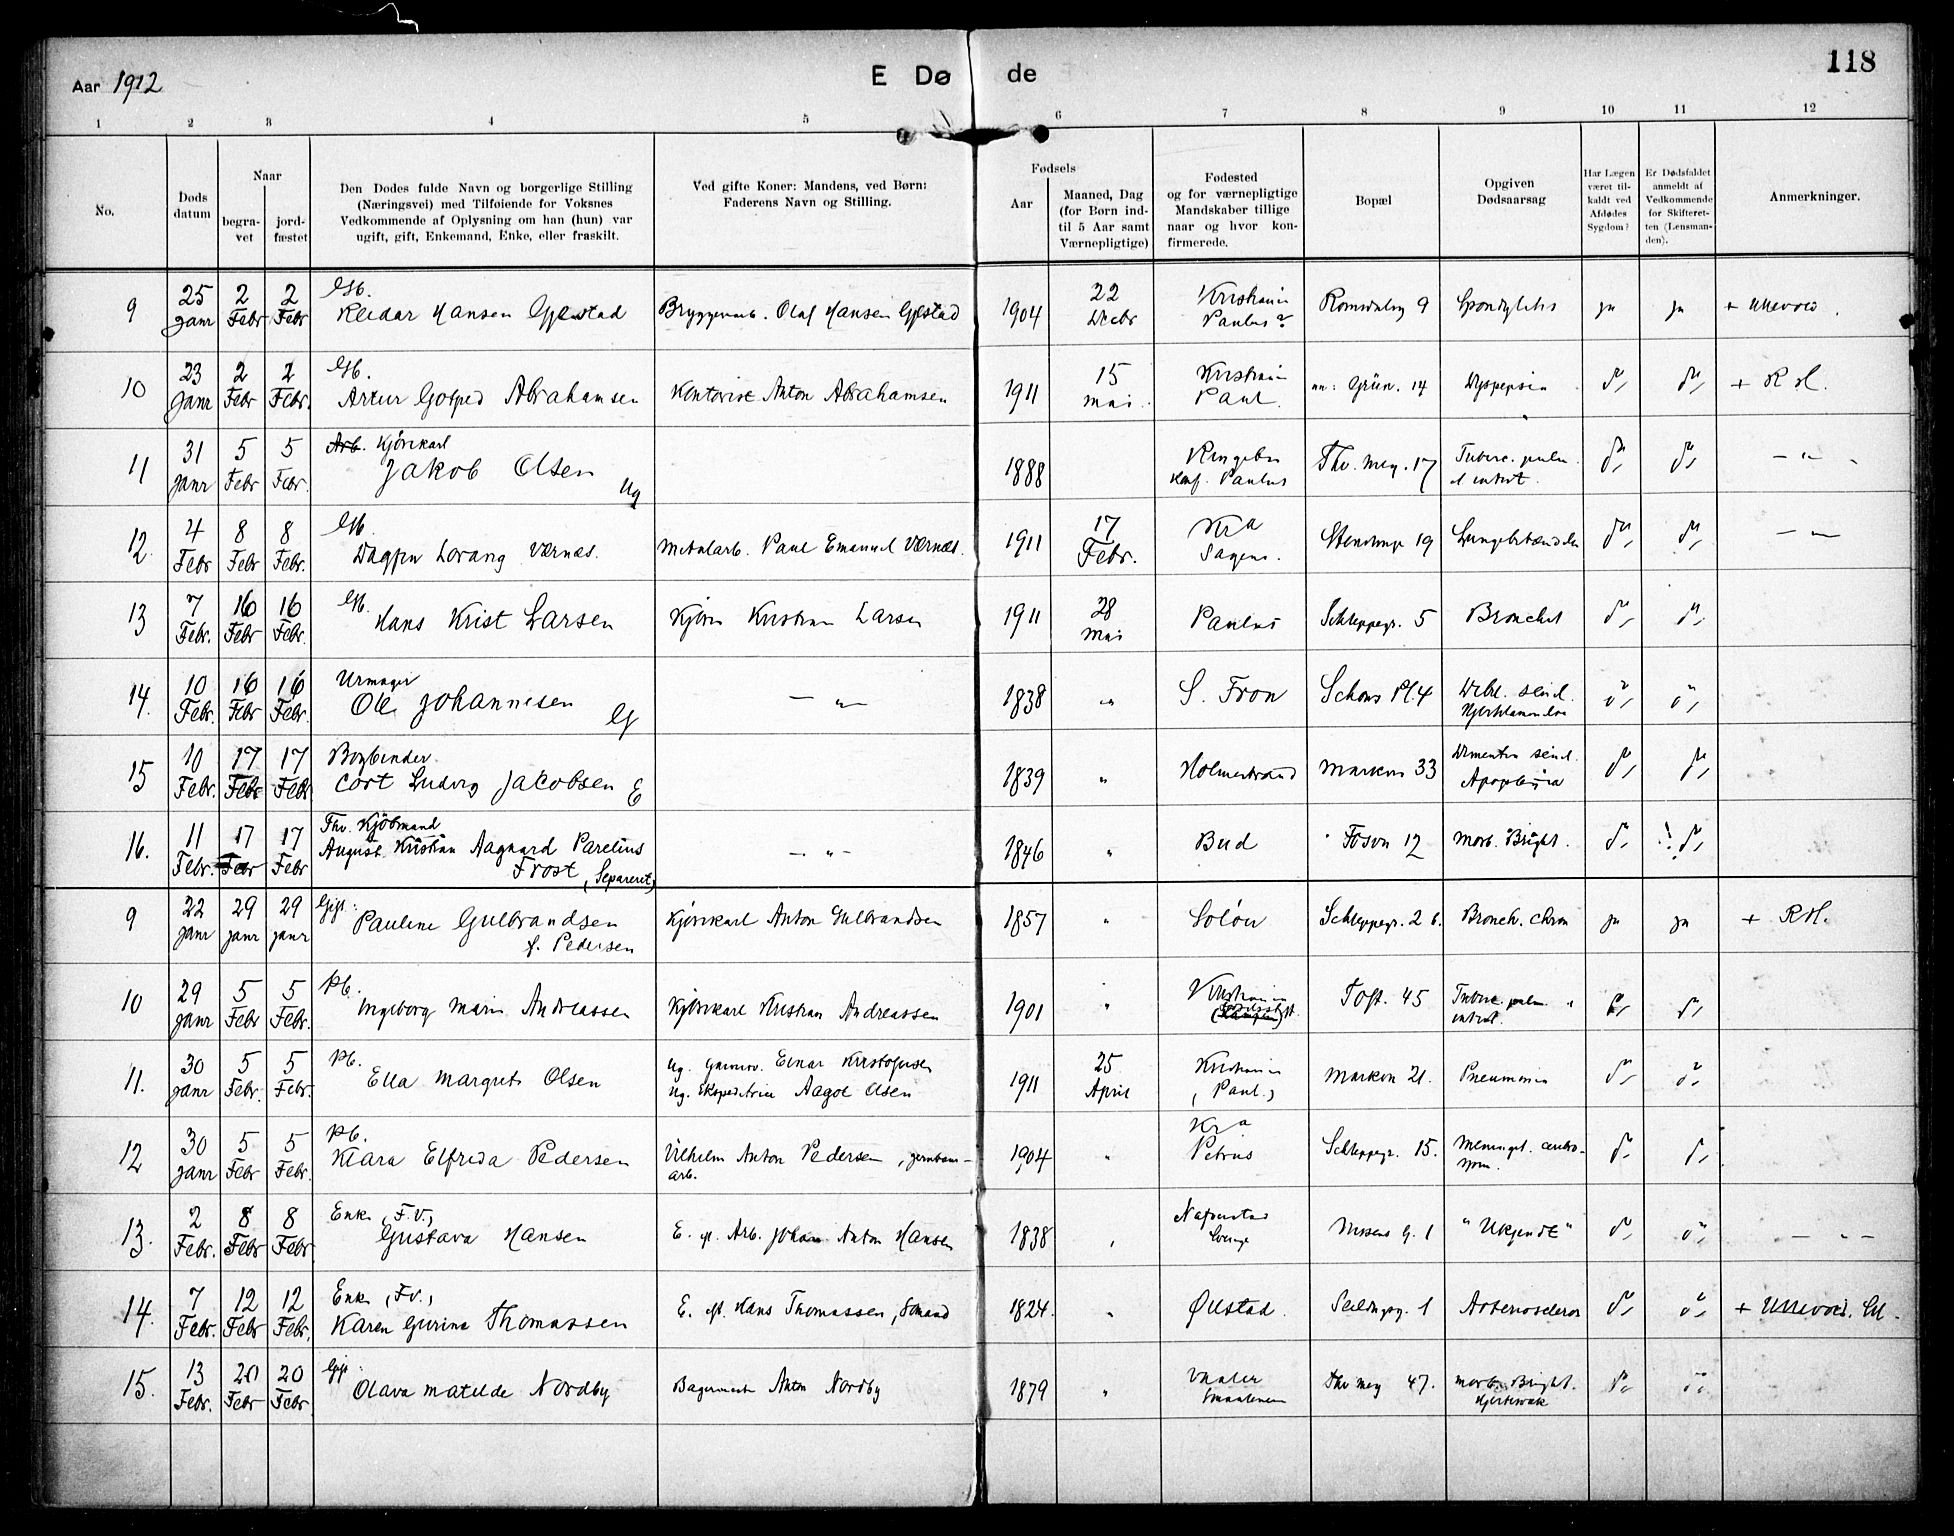 Aar 1912
E Døde
118
1 2 3 4 5 6 7 8 9 10 11 12
No.
Døds datum
Naar
begravet
jordfæstet
Den Dødes fulde Navn og borgerlige Stilling
(Næringsvei) med Tilføiende for Voksnes
Vedkommende af Oplysning om han (hun) var
ugift, gift, Enkemand, Enke, eller fraskilt.
Ved gifte Koner: Mandens, ved Børn:
Faderens Navn og Stilling.
Fødsels
Aar
Maaned, Dag
(for Børn ind-
til 5 Aar samt
Værnepligtige)
Fødested
og for værnepligtige
Mandskaber tillige
naar og hvor kon-
firmerede.
Bopæl
Opgiven
Dødsaarsag
Har Lægen
været til-
kaldt ved
Afdødes
Sygdom?
Er Dødsfaldet
anmeldt af
Vedkommende
for Skifteret-
ten (Lensman-
den).
Anmerkninger.
9 25 Janr 2 Febr 2 Febr Reidar Hansen Gjestad Olaf Hansen Gjestad 1904 22 Decbr Kristiania Paulus? Romsdalsg 9 Spondylitis ja ja + Ullevold.
10 23 Janr 2 Febr 2 Febr. Artur Gotfred Abrahamsen Kontorist Anton Abrahamsen 1911 15 Mai Kristiania Paul. Grün. 14 Dyspepsia + R H.
11 31 Janr 5 Febr 5 Febr. Arb. Kjørekarl Jakob Olsen Ug 1888 Ringebu Konf. Paulus Thv. Mey. 17 Tuberc. pulm. et intest. — " —
12. 4 Febr 8 Febr 8 Febr. Dagfin Lorang Værnæs. Metalarb. Paul Emanuel Værnæs. 1911 17 Febr. Kra Sagene. Stenstrupg 19 Lungebetændelse — " —
13 7 Febr. 16 Febr 16 Febr. Hans Krist Larsen Kjørek Kristian Larsen 1911 28 Mai Paulus Schleppegr. 5 Bronchit
14. 10 Febr. 16 Febr 16 Febr. Urmager Ole Johannesen — " — 1838 " S. Fron Schous Pl. 4
15 10 Febr. 17 Febr 17 Febr. Bogbinder Cort Ludvig Jacobsen E 1839 " Holmestrand Markvn 33 Dementia senil. Apoplexia
16. 11 Febr. 17 Febr 17 Febr Fhv. Kjøbmand August Kristian Aagaard Parelius Frost (Separeret) — " — 1846 " Bud Fosvn 12 Morb. Bright.
9 22 Janr 29 Janr 29 Janr Gift. Pauline Gulbrandsen f. Pedersen Kjørekarl Anton Gulbrandsen 1857 " Solør Schleppegr. 2 b. Bronch. chron ja ja + RH.
10 29 Janr 5 Febr 5 Febr. Pb. Ingeborg Marie Andreassen Kjørekarl Kristian Andreassen 1901 " Kristiania Toft. 45 Tuberc. pulm. intest.
11. 30 Janr 5 Febr. 5 Febr. Pb. Ella Margrete Olsen Ug. Einar Kristofersen
Ug. Ekspeditrice Aagot Olsen 1911 25 April Kristiania (Paul.) Markvn 21. Pneumonia
12 30 Janr 5 Febr 5 Febr. Pb. Klara Elfrida Pedersen Vilhelm Anton Pedersen, jernbane-
arb. 1904 " Kra Petrus Schleppegr. 15. Meningit. cerebro-
spin.
13. 2 Febr. 8 Febr 8 Febr Enke, F.V., Gustava Hansen E. eft. Arb. Johan Anton Hansen 1838 Nissens g. 1 "Ukjendt" — " —
14. 7 Febr. 12 Febr 12 Febr. Enke, F.V., Karen Gurine Thomassen E. eft. Hans Thomassen, Smaad 1824. " Øiestad. Seildugsg. 1 Arterioscleros + Ullevold.
15. 13 Febr. 20 Febr 20 Febr. Gift. Olava Matilde Nordby Bagermester Anton Nordby 1879 " Vaaler Smaalenene Thv Mey 47. Morb. Bright.